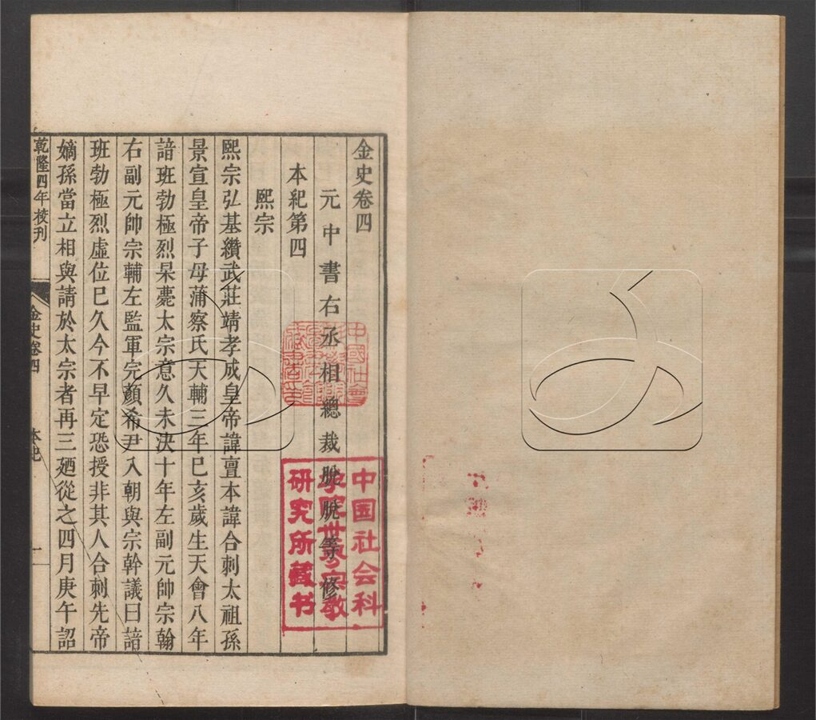 金史卷四
元中書右丞相總裁脫脫等修
本紀第四
熙宗
熙宗弘基纘武莊靖孝成皇帝諱亶本諱合剌太祖孫
景宣皇帝子母蒲察氏天輔三年已亥歲生天會八年
諳班勃極烈杲薨太宗意久未決十年左副元帥宗翰
右副元帥宗輔左監軍完顏希尹入朝與宗幹議曰諳
班勃極烈虛位已久今不早定恐授非其人合剌先帝
嫡孫當立相與請於太宗者再三廼從之四月庚午詔
乾隆四年校刊
金史卷四
中国社会科
学院世界宗教
研究所藏书